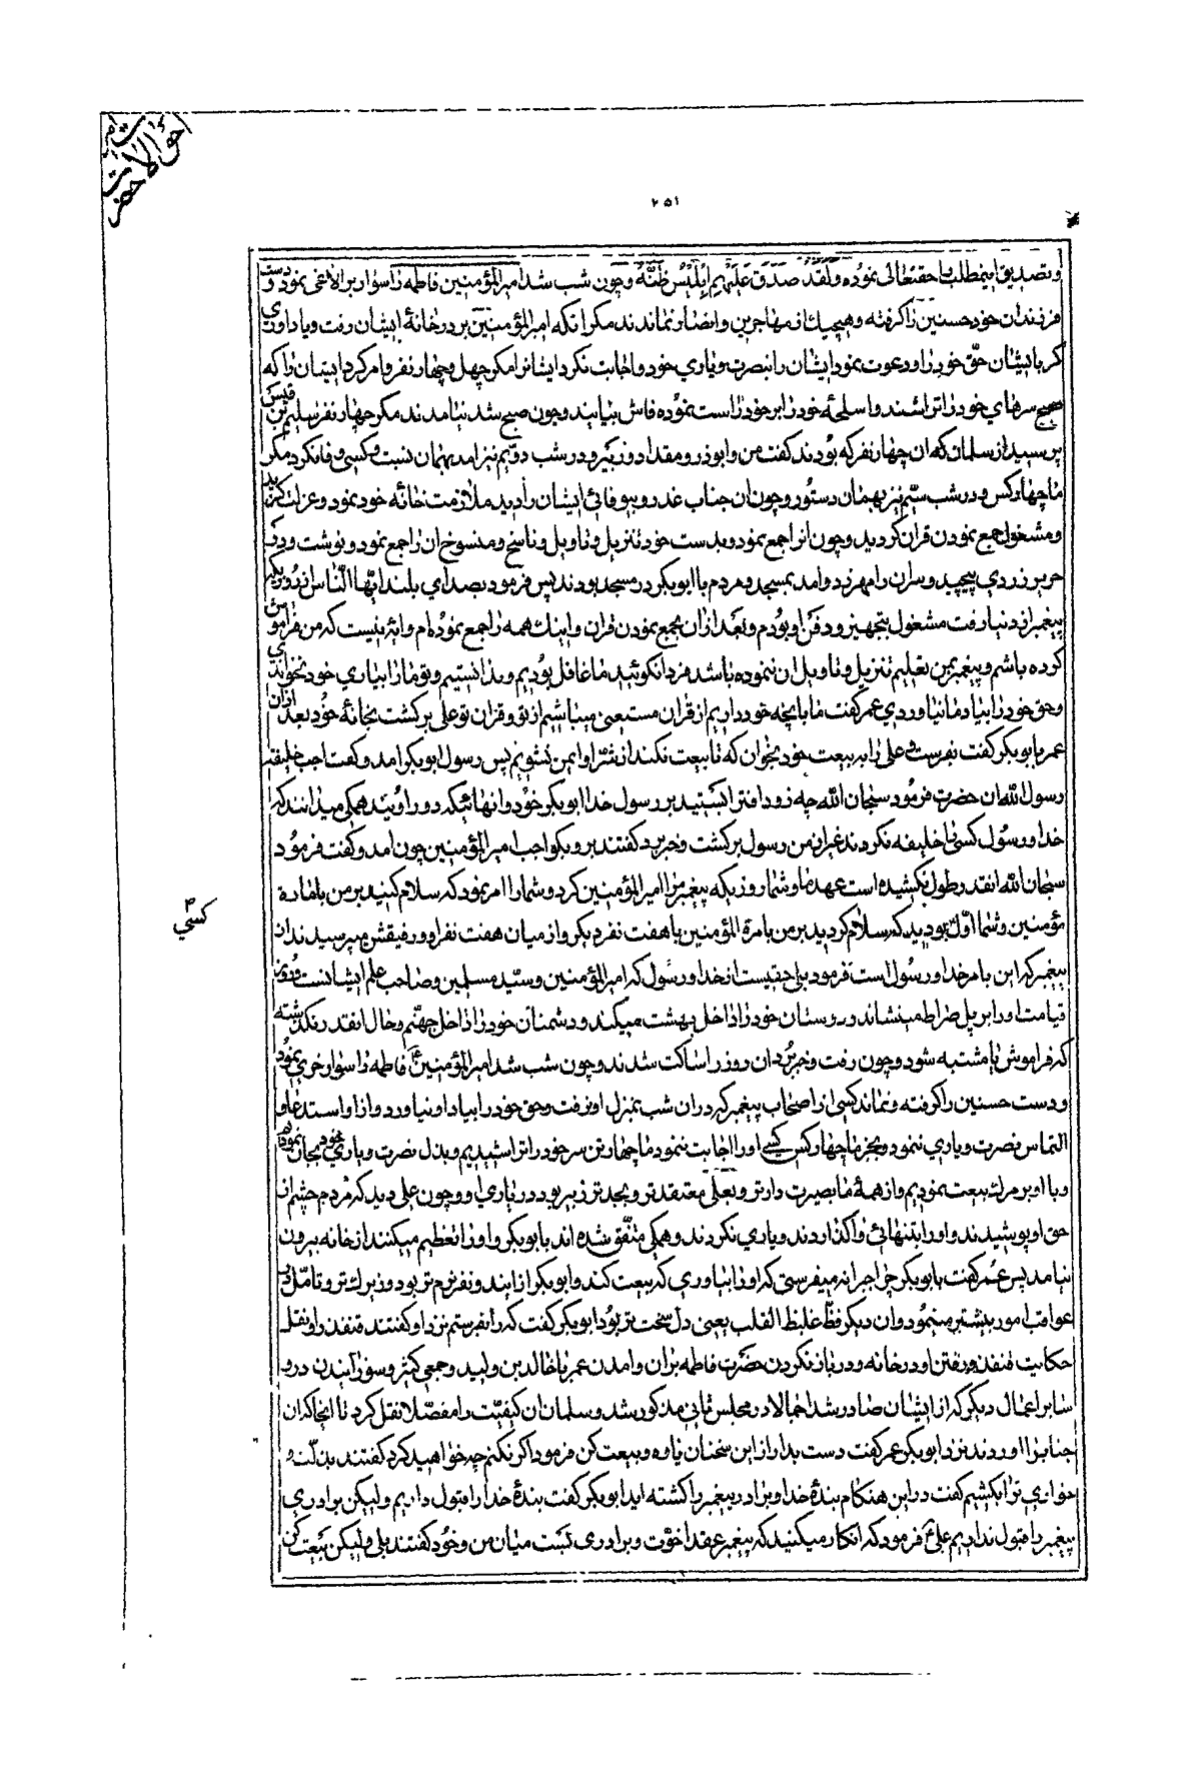 احوالات حضرت
۲۵۱
و تصدیق اینمطلب را حقتعالی نموده وَلَقَدْ صَدَّقَ عَلَیْهِمْ اِبْلیٖسُ ظَنَّهُ و چون شب شد امیرالمؤمنین فاطمه را سوار بر الاغی نمود و دست
فرزندان خود حسنین را گرفته و هیچیك از مهاجرین و انصار نماندند مکر انکه امیرالمؤمنین بر در خانهٔ ایشان رفت و یاداوری
کر بایشان حق خود را و دعوت نمود ایشان را بنصرت و یاری خود و اجابت نکرد ایشانرا مکر چهل و چهار نفر و امر کرد ایشان را که
صبح سرهای خود را تراشند و اسلحهٔ خود را بر خود راست نموده فاش بیایند و چون صبح شد نیامدند مکر چهار نفر سلیم بن قیس
پرسید از سلمان که ان چهار نفر که بودند کفت من و ابوذر و مقداد و زبیر و در شب دویّم نیز امد بهمان نسبت و کسی وفا نکرد مکر
ما چهار کس و در شب سیّم نیز بهمان دستور و چون ان جناب غدر و بیوفائی ایشان را دید ملازمت خانهٔ خود نمود و عزلت کزید
و مشغول جمع نمودن قران کردید و چون انرا جمع نمود و بدست خود تنزیل و تاویل و ناسخ و منسوخ ان را جمع نمود و نوشت و در
حریر زردی پیچید و سران را مهر زد و امد بمسجد و مردم با ابوبکر در مسجد بودند پس فرمود بصدای بلند ایّها النّاس از روزیکه
پیغمبر از دنیا رفت مشغول بتجهیز و دفن او بودم و بعد از ان بجمع نمودن قران و اینك همه را جمع نموده ام و ایهٔ نیست که من فراموش
کرده باشم و پیغمبر بمن تعلیم تنزیل و تاویل ان ننموده باشد فردا نکوئید ما غافل بودیم و ندانستیم و تو ما را بیاری خود نخواندی
و حق خود را بیاد ما نیاوردی عمر کفت ما بانچه خود داریم از قران مستغنی میباشیم از تو و قران تو علی برکشت بخانهٔ خود بعد از ان
عمر بابوبکر کفت بفرست و علی را بر بیعت خود بخوان که تا بیعت نکند از شرّ او ایمن نشویم پس رسول ابوبکر امد و کفت اجب خلیفة
رسول الله ان حضرت فرمود سبحان الله چه زود افترا بستید بر رسول خدا ابوبکر خود و انهائیکه دور اویند همکی میدانند که
خدا و رسول کسی را خلیفه نکردند غیر از من رسول برکشت و خبر برد کفتند برو بکو اجب امیرالمؤمنین چون امد و کفت فرمود
سبحان الله انقدر طول نکشیده است عهد ما و شما روزیکه پیغمبر مرا امیرالمؤمنین کرد و شما را امر نمود که سلام کنید بر من بامارة
مؤمنین و شما اوّل بودید که سلام کردید بر من بامرة المؤمنین با هفت نفر دیکر و از میان هفت نفر او و رفیقش میپرسیدند از
پیغمبر که این بامر خدا و رسول است فرمود بلی حقیست از خدا و رسول که امیرالمؤمنین و سیّد مسلمین و صاحب علم ایشانست و روز
قیامت او را بر پل صراط مینشاند و دوستان خود را داخل بهشت میکند و دشمنان خود را داخل جهنّم و حال انقدر نکذشته
که فراموش یا مشتبه شود و چون رفت و خبر برد ان روز را ساکت شدند و چون شب شد امیرالمؤمنین فاطمه را سوار خری نمود
و دست حسنین را کرفته و نماند کسی از اصحاب پیغمبر که در ان شب بمنزل او نرفت و حق خود را بیاد او نیاورد و از او استدعا و
التماس نصرت و یاری ننمود و بجز ما چهار کس کسی او را اجابت ننمود ما چهار تن سر خود را تراشیدیم و بذل نصرت و یاری خود بجان نمودیم
و با او بر مرك بیعت نمودیم و از همهٔ ما بصیرت دارتر و بعلی معتقدتر و بجدتر زبیر بود در یاری او و چون علی دید که مردم چشم از
حق او پوشیدند و او را بتنهائی واکذاردند و یاری نکردند و همکی متّفق شده اند بابوبکر و او را تعظیم میکنند از خانه بیرون
نیامد پس عمر کفت بابوبکر چرا جرا نه میفرستی که او را بیاوری که بیعت کند و ابوبکر از ایندو نفر نرم تر بود و زیرك تر و تامّل در
عواقب امور بیشتر مینمود و ان دیکر فظّ غلیظ القلب یعنی دل سخت تر بود ابوبکر کفت که را بفرستم نزد او کفتند قنفذ را و نقل
حکایت قنفذ و رفتن او در خانه و در باز نکردن حضرت فاطمه بر ان و امدن عمر با خالد بن ولید و جمعی کثیر و سوزانیدن در و
سایر اعمال دیکر که از ایشان صادر شد اجمالا در مجلس ثانی مذکور شد و سلمان ان کیفیّت را مفصّلا نقل کرد تا انجا که ان
جنابرا اوردند نزد ابوبکر عمر کفت دست بدار از این سخنان یاوه و بیعت کن فرمود اکر نکنم چه خواهید کرد کفتند بذلّت و
خواری ترا بکشیم کفت در این هنکام بندهٔ خدا و برادر پیغمبر را کشته اید ابوبکر کفت بندهٔ خدا را قبول داریم و لیکن برادری
پیغمبر را قبول نداریم علی فرمود که انکار میکنید که پیغمبر عقد اخوّت و برادری بست میان من و خود کفتند بلی و لیکن بیعت کن
کسی